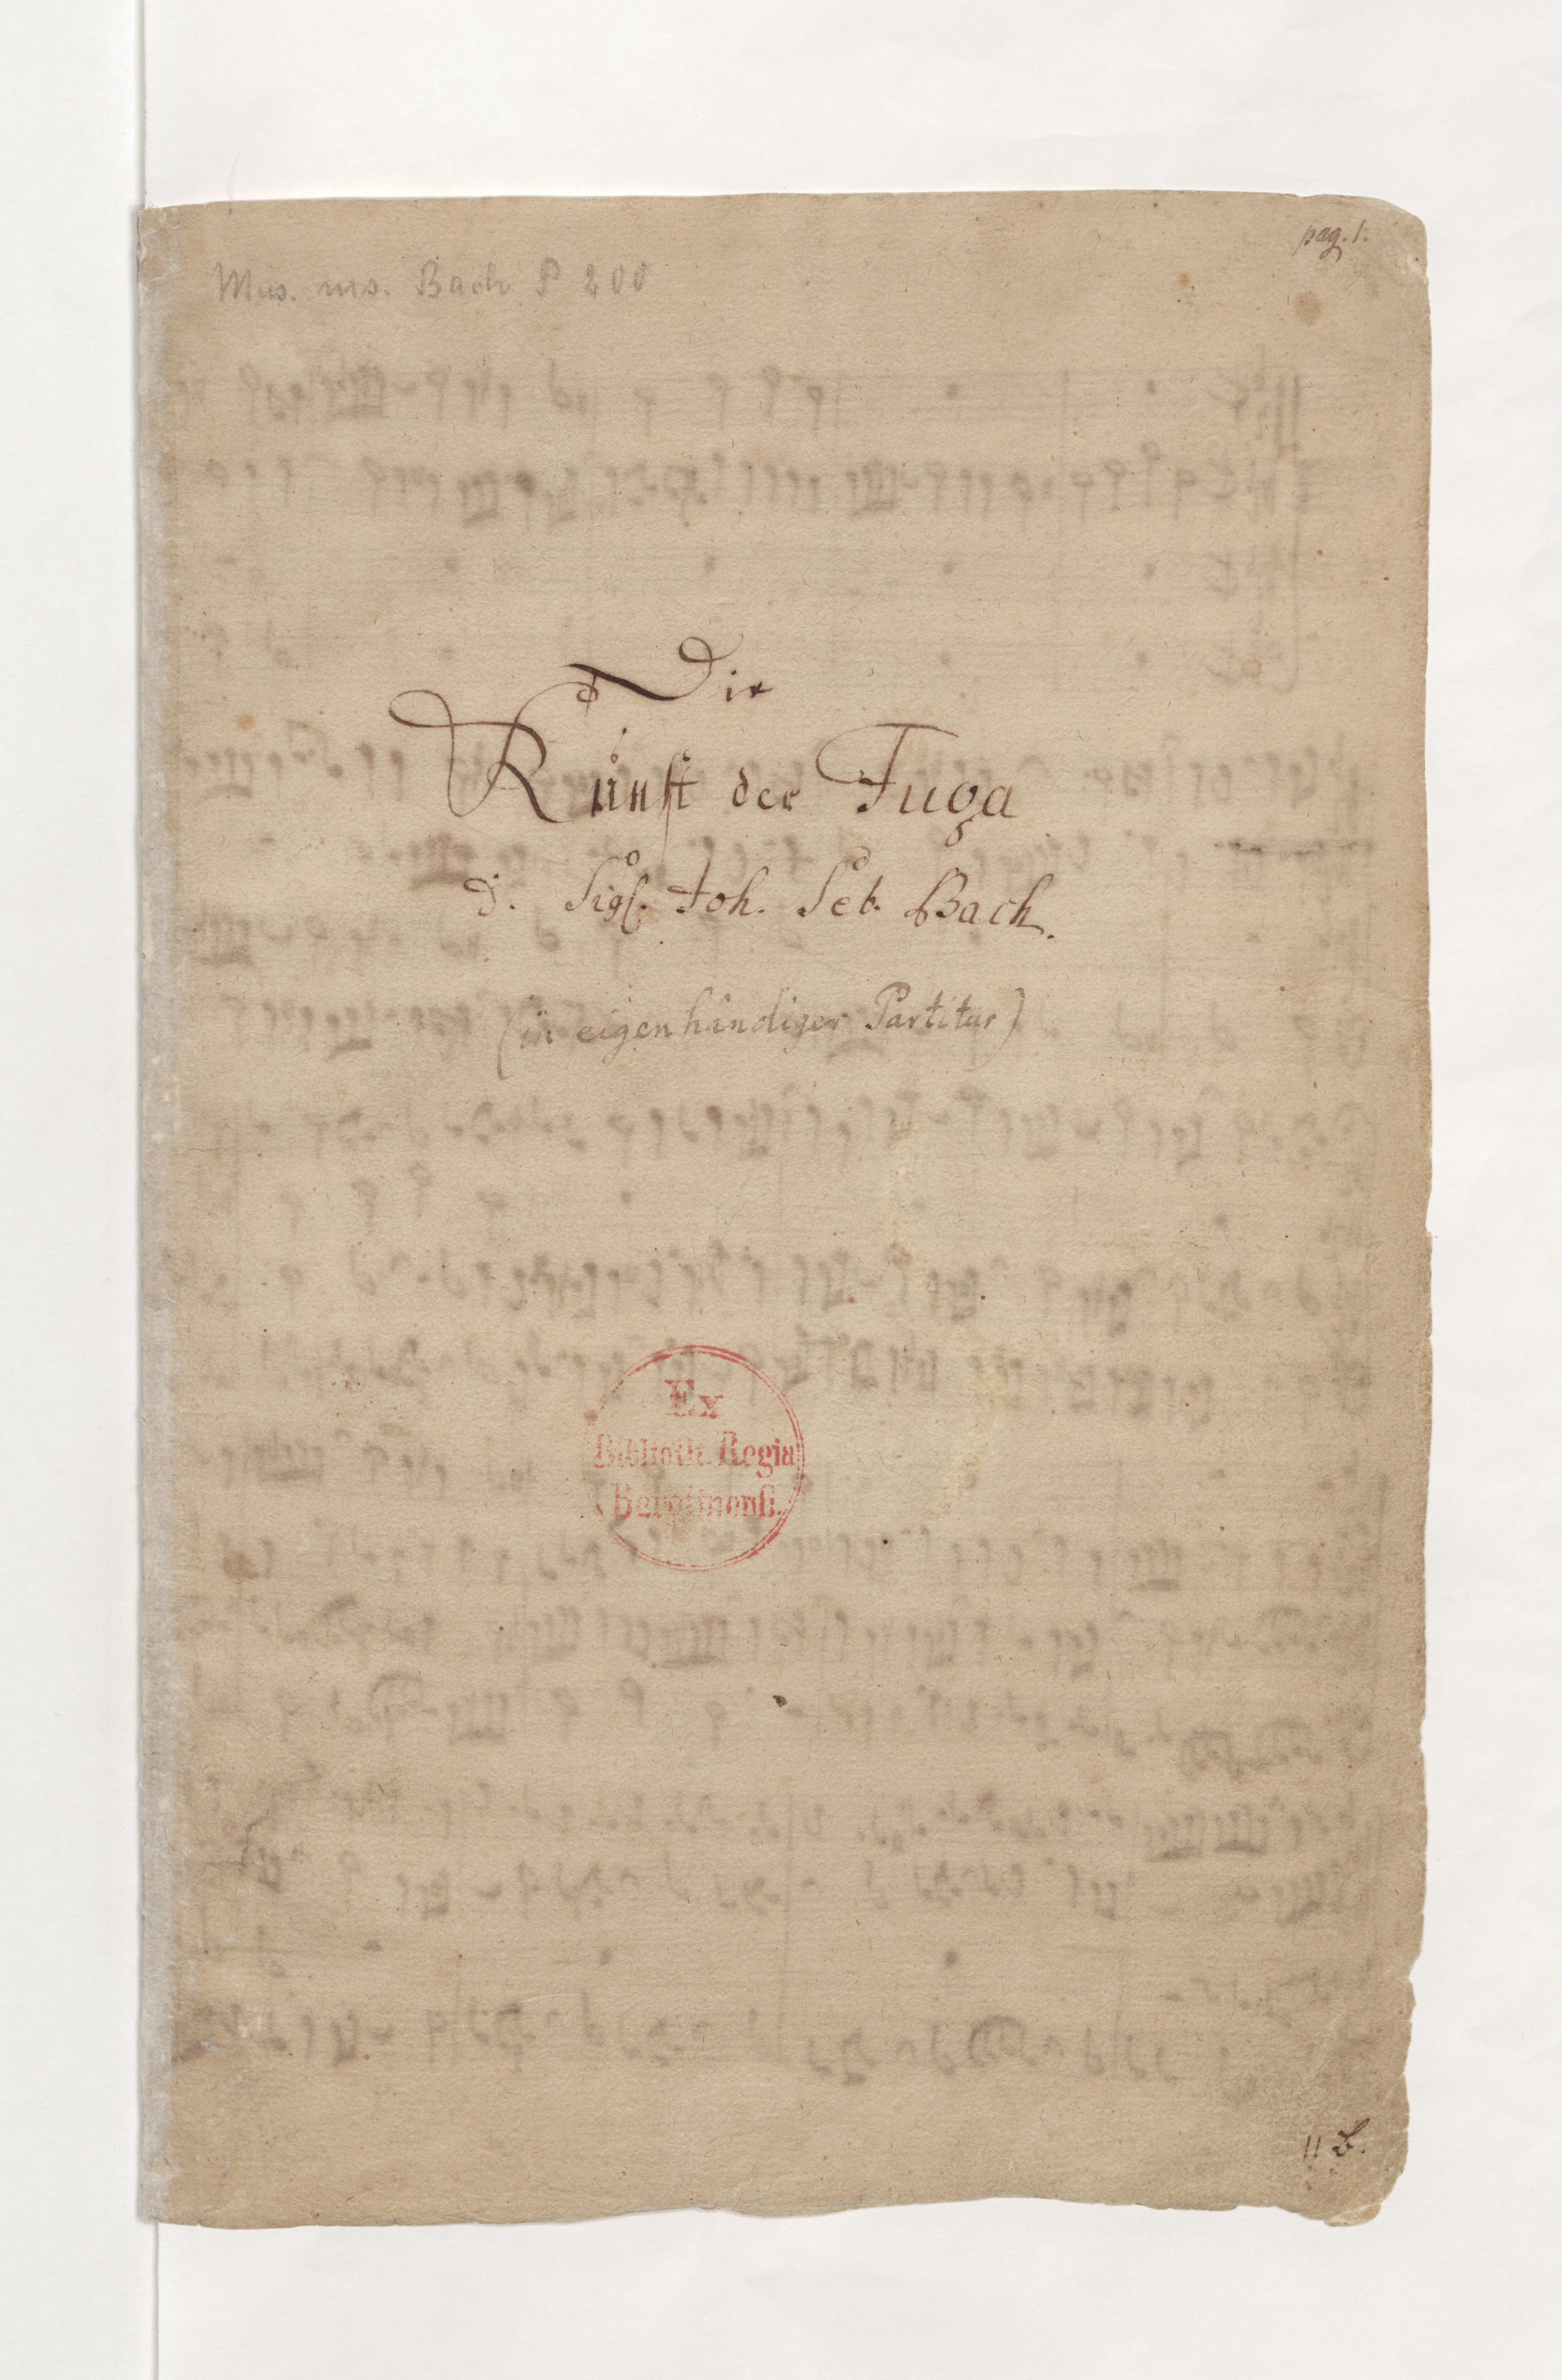 pag. 1.
Mus. ms. Bach P 200
Die
Kunst der Fuga
d. Sigl. Joh. Seb. Bach.
(in eigenhändiger Partitur)
Ex
Biblioth. Regia
Berolinensi.
11 b.